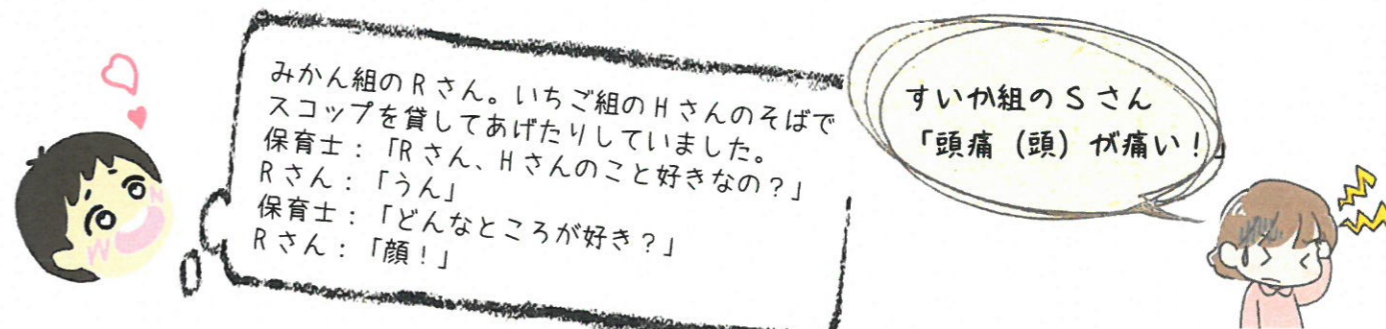 みかん組のRさん。いちご組のHさんのそばで
スコップを貸してあげたりしていました。
保育士：「Rさん、Hさんのこと好きなの？」
Rさん：「うん」
保育士：「どんなところが好き？」
Rさん：「顔！」
すいか組のSさん
「頭痛（頭）が痛い！」